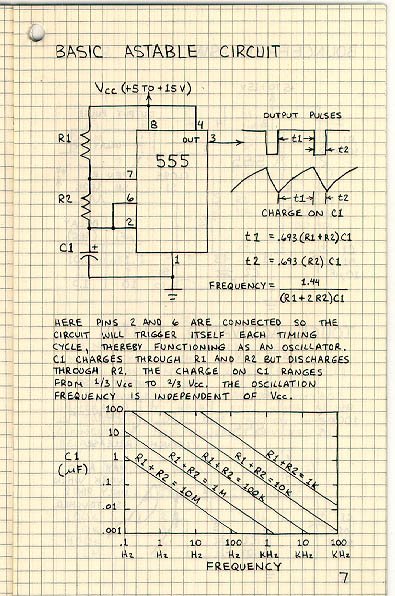 BASIC ASTABLE CIRCUIT
Vcc (+5 TO +15V)
8
4
R1
OUT
3
555
7
R2
6
2
C1
+
1
OUTPUT PULSES
t1
t2
t1
t2
CHARGE ON C1
t1 = .693 (R1+R2) C1
t2 = .693 (R2) C1
FREQUENCY = 1.44
(R1+2R2)C1
HERE PINS 2 AND 6 ARE CONNECTED SO THE
CIRCUIT WILL TRIGGER ITSELF EACH TIMING
CYCLE, THEREBY FUNCTIONING AS AN OSCILLATOR.
C1 CHARGES THROUGH R1 AND R2 BUT DISCHARGES
THROUGH R2. THE CHARGE ON C1 RANGES
FROM 1/3 Vcc TO 2/3 Vcc. THE OSCILLATION
FREQUENCY IS INDEPENDENT OF Vcc.
100
10
1
.1
.01
.001
C1
(µF)
R1+R2=10M
R1+R2=1M
R1+R2=100K
R1+R2=10K
R1+R2=1K
.1 1 10 100 1 10 100
Hz Hz Hz Hz KHz KHz KHz
FREQUENCY
7